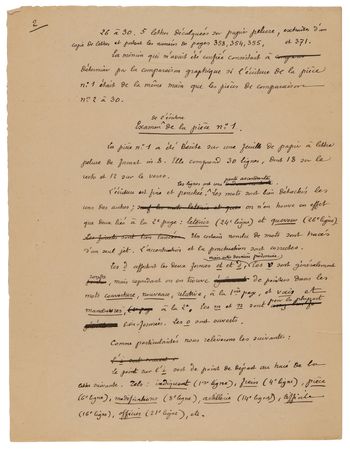 2
26 à 30. 5 lettres décalquées sur papier pelure, extraites d'un
copie de lettres et portant les numéros de pages 353, 354, 355, et 371.
La mission qui m'avait été confiée consistait à
déterminer par la comparaison graphique si l'écriture de la pièce
n° 1 était de la même main que les pièces de comparaison
n° 2 à 30.
Examen de l'écriture de la pièce n° 1.
La pièce n° 1 a été écrite sur une feuille de papier à lettre
pelure de format in 8. Elle comprend 30 lignes, dont 18 sur le
recto et 12 sur le verso.
Les lignes ont une
L'écriture est fine et penchée. Les mots sont bien détachés les
uns des autres; on n'en trouve en effet
que deux liés à la 2e page: (24e ligne) et (22e ligne)
Un certain nombre de mots sont tracés
d'un seul jet. L'accentuation et la ponctuation sont correctes.
Les d affectent les deux formes et Les sont généralement
mais cependant on en trouve de pointés dans les
mots couverture, nouveaux, relative, à la 1ère page, et vais et
manœuvres à la 2e. Les m et n sont
conformés. Les o sont ouverts.
Comme particularités nous relèverons les suivantes:
le point sur l'i sert de point de départ au tracé de la
lettre suivante. Tels: indiquant (1ère ligne), frein (4e ligne), pièce
(6e ligne), modifications (8e ligne), artillerie (14e ligne), difficile
(16e ligne), officier (21e ligne), etc.